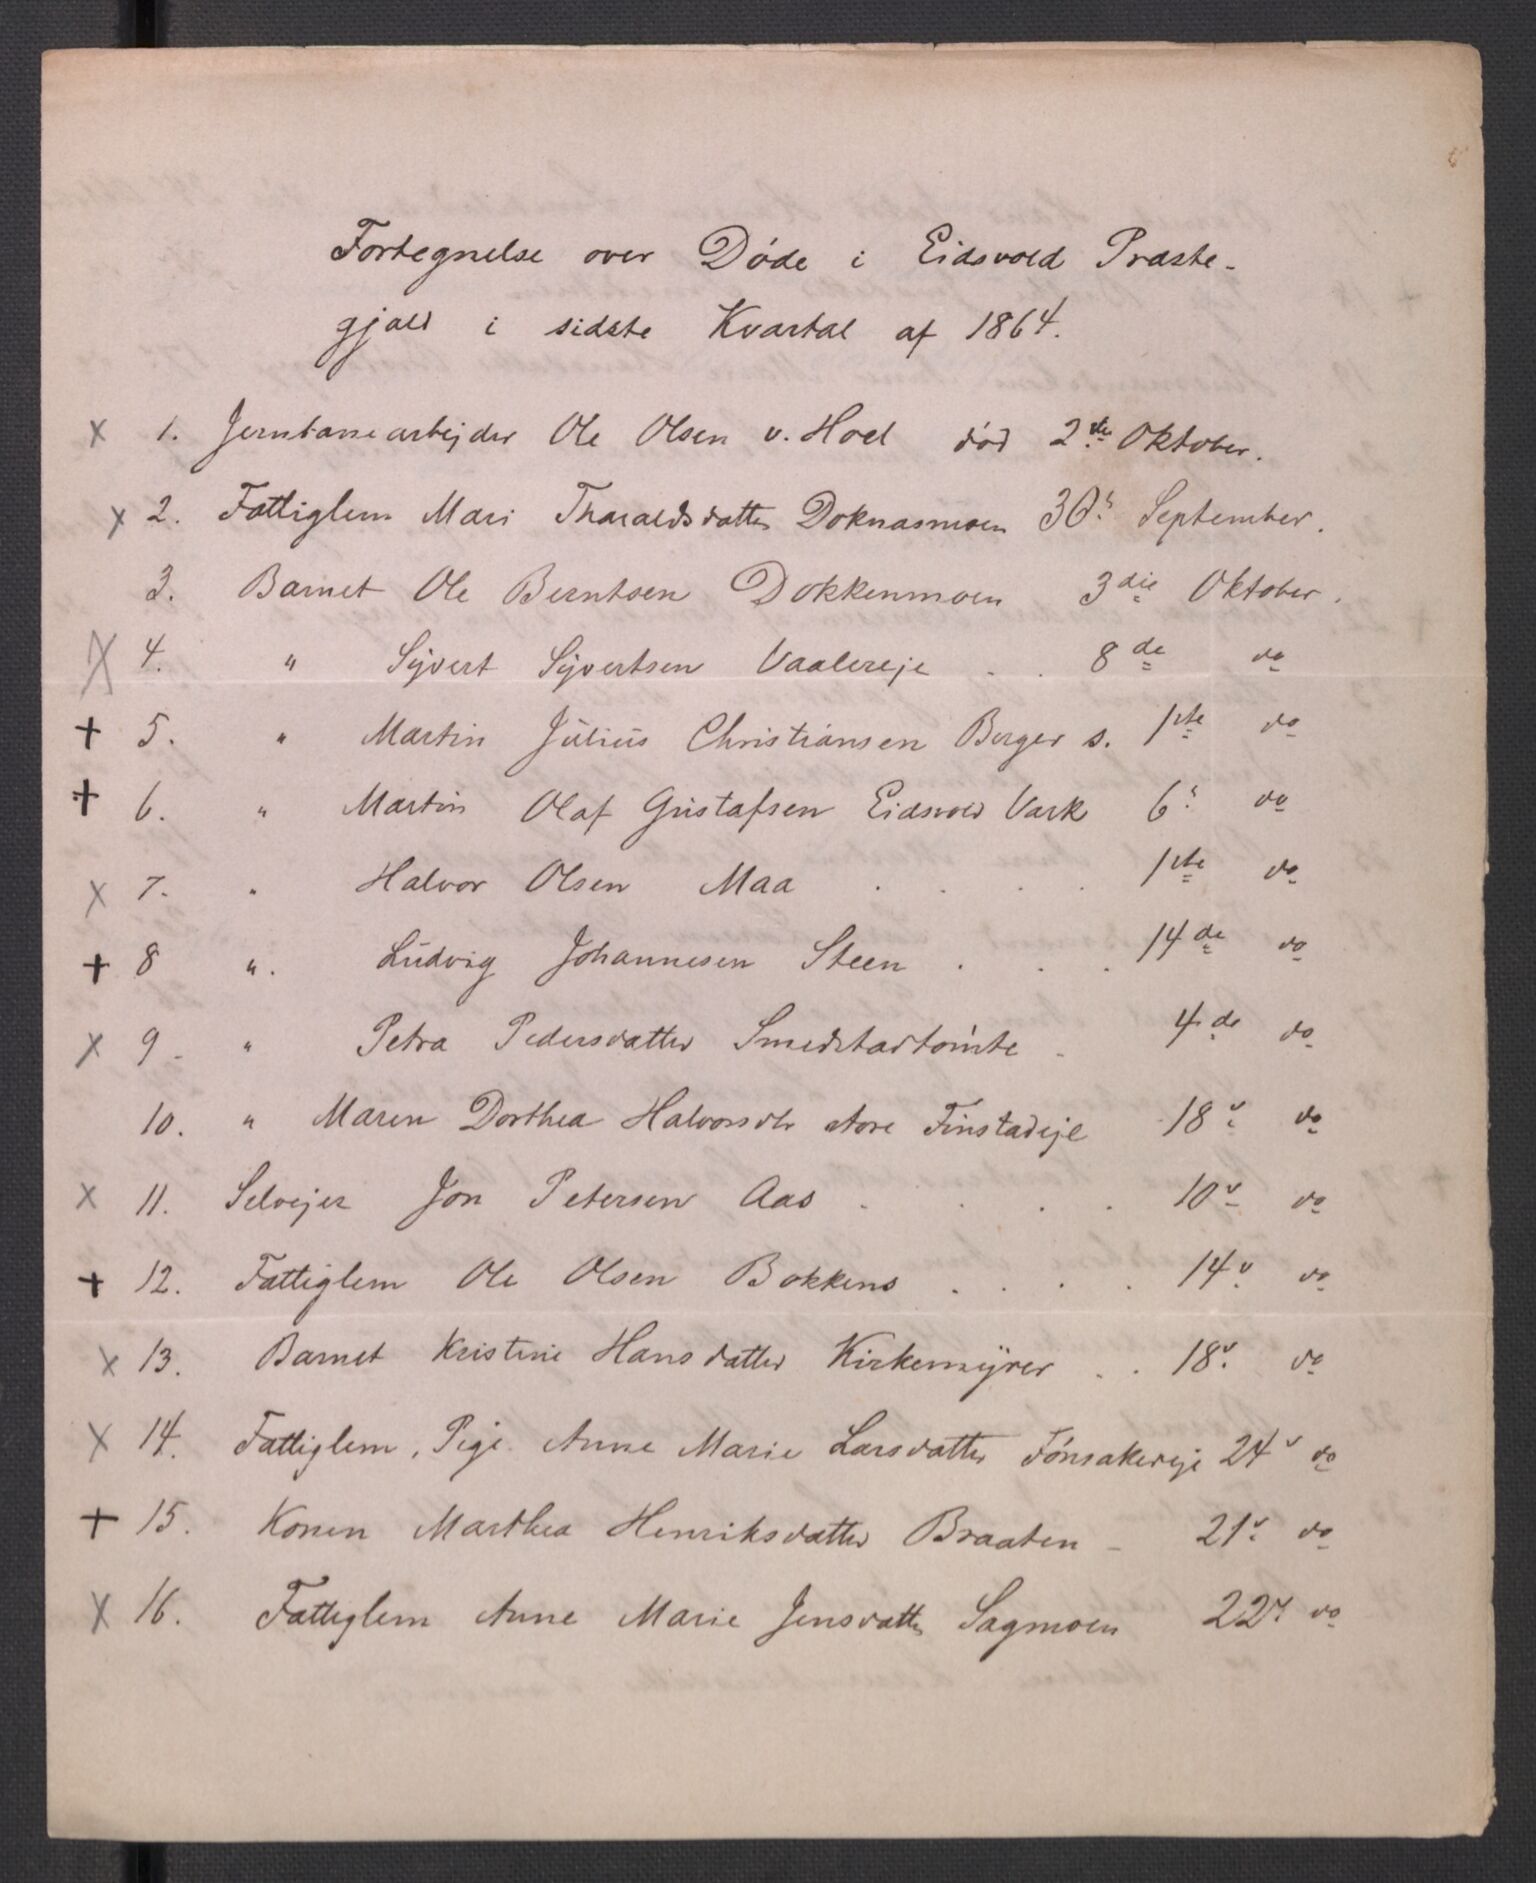 Fortegnelse over Døde i Eidsvold Præste-
gjæld i sidste Kvartal af 1864.
x 1. Jernbanearbejder Ole Olsen v. Hoel død 2de Oktober.
x 2. Fattiglem Mari Tharaldsdatter Doknasmoen 30" September.
3. Barnet Ole Berntsen Dokkenmoen 3die Oktober.
x 4. " Syvert Syvertsen Vaalereje . . 8de do
+ 5. " Martin Julius Christiansen Berger s. 1ste do
+ 6. " Martin Olaf Gustafsen Eidsvold Værk 6" do
x 7. " Halvor Olsen Maa . . . . 1ste do
+ 8 ". Ludvig Johannesen Steen . . . 14de do
x 9 - " Petra Pedersdatter Smedstadtomte - 4de do
10. " Maren Dorthea Halvorsdtr store Finstadeje 18" do
x 11. Selvejer Jon Petersen Aas . . . . 10" do
+ 12. Fattiglem Ole Olsen Bakkens . . . . 14" do
x 13. Barnet Kristine Hansdatter Kirkemyrer . . 18" do
x 14. Fattiglem, Pige Anne Marie Larsdatter Tønsakereje 24" do
+ 15. Konen Marthea Henriksdatter Braaten - 21" do
x 16. Fattiglem Anne Marie Jensdatter Sagmoen 22" do